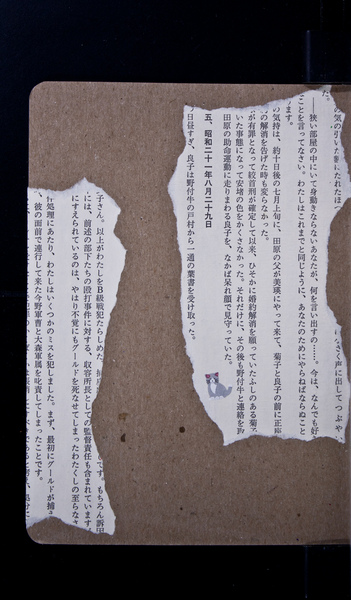 た。
気の引いた
なく声に出してつぶや
――狭い部屋の中にいて身動きならないあなたが、何を言い出すの……。今は、なんでも好
ことを言ってなさい。わたしはこれまでと同じように、あなたのためにやらねばならぬこと
ます。
の気持は、約十日後の七月上旬に、田原の父が美瑛にやって来て、菊子と良子の前に正座
の解消を告げた時も変らなかった。
が有罪となって絞首刑が確定して以来、ひそかに婚約解消を願っていたふしのある菊
いた事態になって安堵の色をかくさなかった。それだけに、その後も野付牛と連絡を取
田原の助命運動に走りまわる良子を、なかば呆れ顔で見守っていた。
五、昭和二十一年八月二十九日
日昼すぎ、良子は野付牛の戸村から一通の葉書を受け取った。
子さん。以上がわたしをB級戦犯たらしめた、
です。もちろん訴因
には、前述の部下たちの殴打事件に対する、収容所長としての監督責任も含まれています
にすえられているのは、やはり不覚にもグールドを死なせてしまったわたくしの至らなさ
件処理にあたり、わたしはいくつかのミスを犯しました。まず、最初にグールドが捕
、彼の面前で連行して来た今野軍曹と大森軍属を叱責してしまったことです。